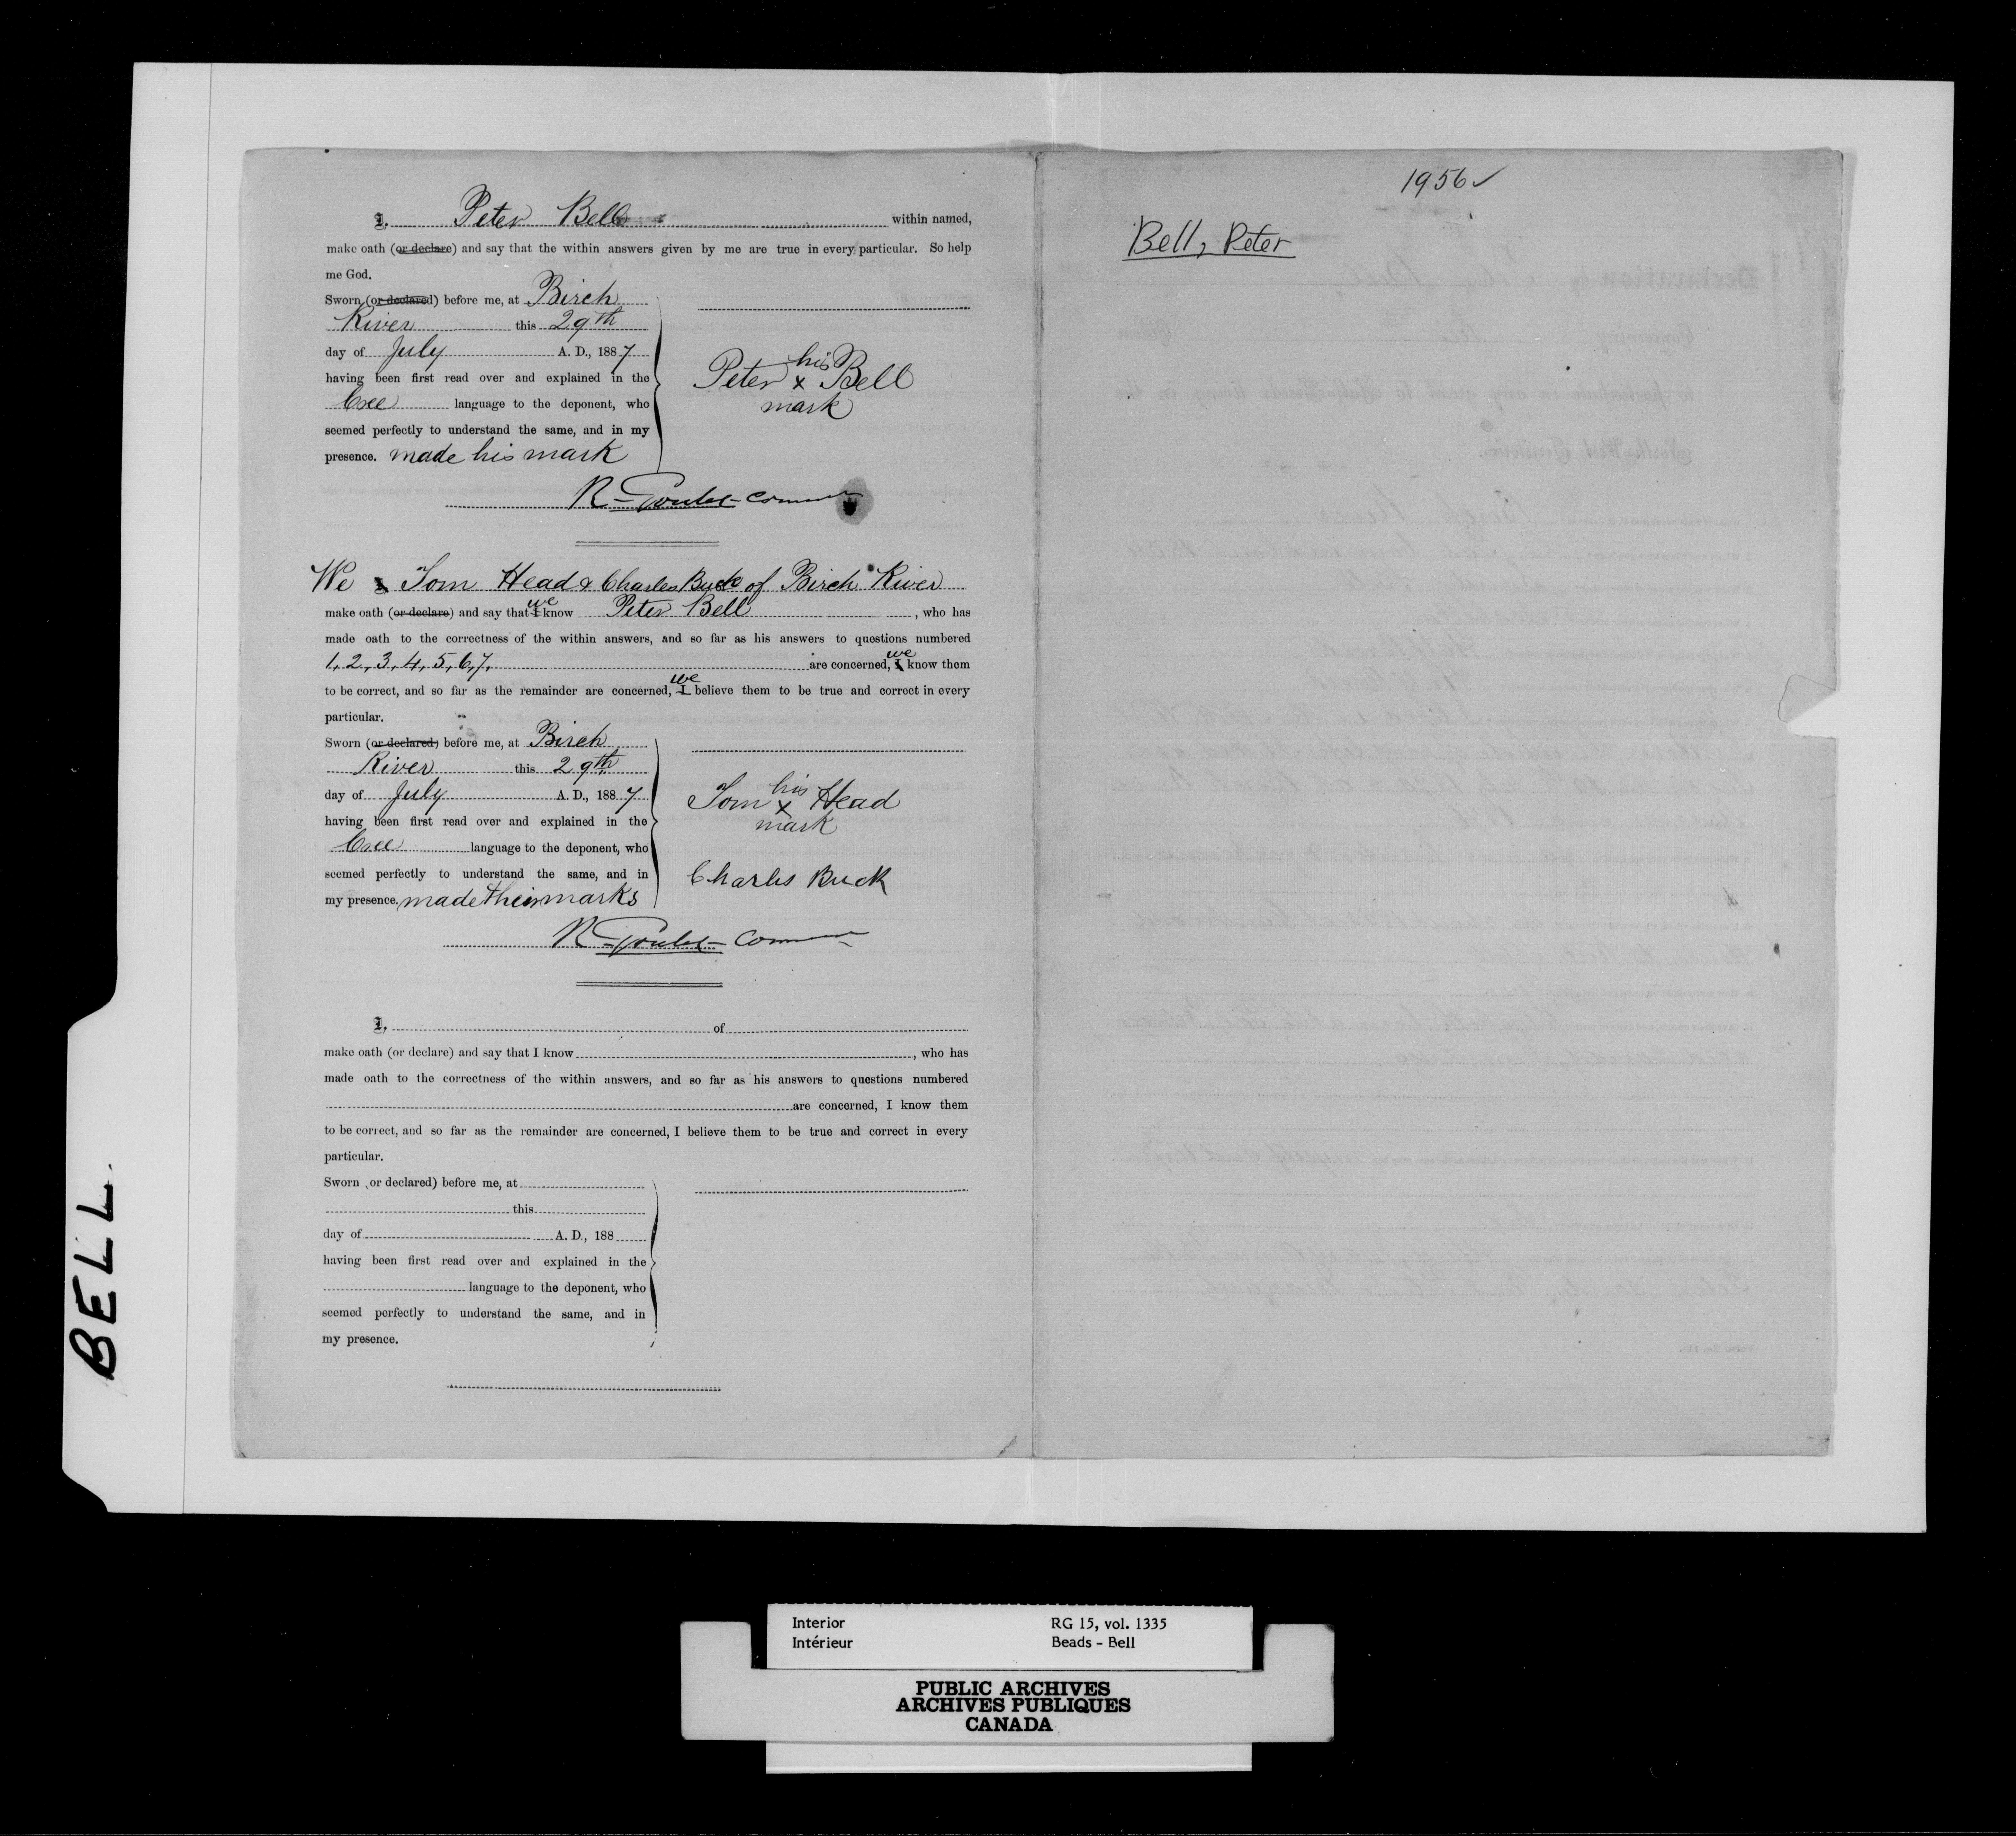 I, Peter Bell within named,
make oath (or declare) and say that the within answers given by me are true in every particular. So help
me God.
Sworn (or declared) before me, at Birch
River this 29th
day of July A. D., 1887
having been first read over and explained in the
Cree language to the deponent, who
seemed perfectly to understand the same, and in my
presence. made his mark
his
Peter x Bell
mark
R. Goulet
We I Tom Head & Charles Buck of Birch River
make oath (or declare) and say that I we know Peter Bell, who has
made oath to the correctness of the within answers, and so far as his answers to questions numbered
1, 2, 3, 4, 5, 6, 7, are concerned, I we know them
to be correct, and so far as the remainder are concerned, I we believe them to be true and correct in every
particular.
Sworn (or declared) before me, at Birch
River this 29th
day of July A. D., 1887
having been first read over and explained in the
Cree language to the deponent, who
seemed perfectly to understand the same, and in
my presence. made their marks
his
Tom x Head
mark
Charles Buck
R. Goulet
I, of
make oath (or declare) and say that I know , who has
made oath to the correctness of the within answers, and so far as his answers to questions numbered
are concerned, I know them
to be correct, and so far as the remainder are concerned, I believe them to be true and correct in every
particular.
Sworn (or declared) before me, at
this
day of A. D., 188
having been first read over and explained in the
language to the deponent, who
seemed perfectly to understand the same, and in
my presence.
1956 ✓
Bell, Peter
BELL.
Interior RG 15, vol. 1335
Intérieur Beads - Bell
PUBLIC ARCHIVES
ARCHIVES PUBLIQUES
CANADA